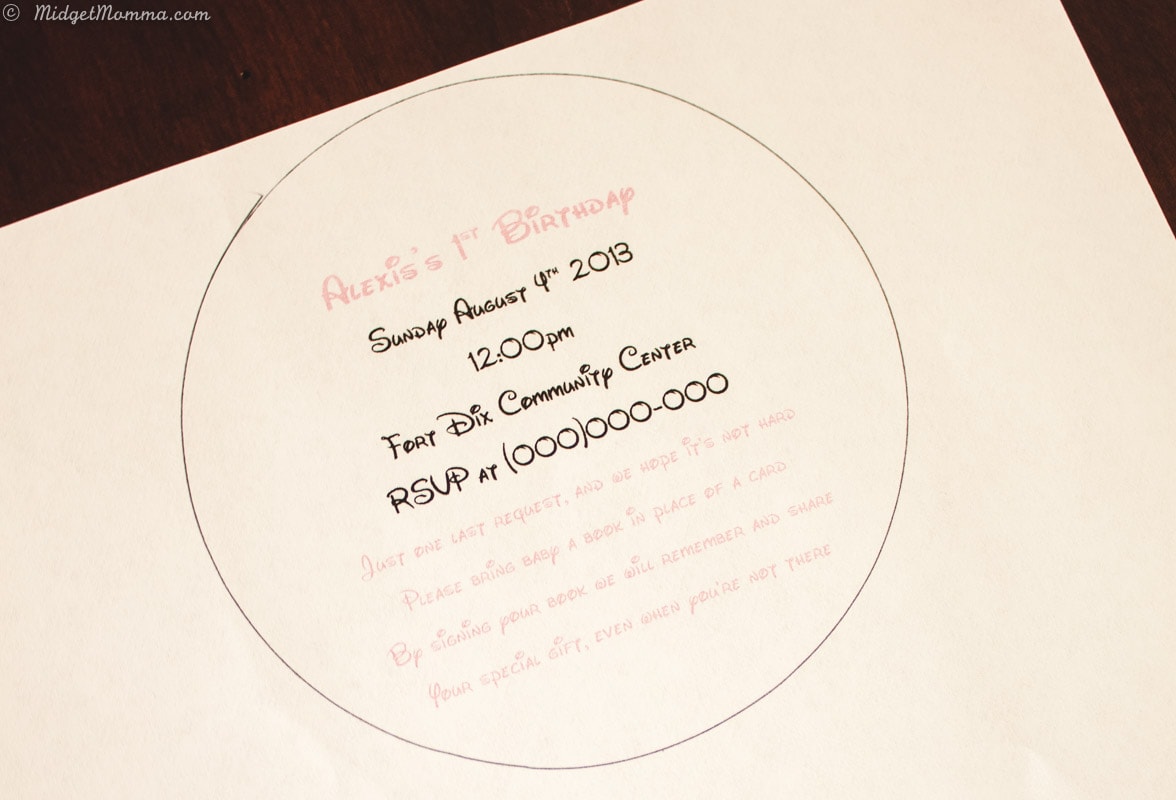 © MidgetMomma.com
Alexis's 1st Birthday
Sunday August 4th 2013
12:00pm
Fort Dix Community Center
RSVP at (000)000-000
Just one last request, and we hope it's not hard
Please bring baby a book in place of a card
By signing your book we will remember and share
Your special gift, even when you're not there